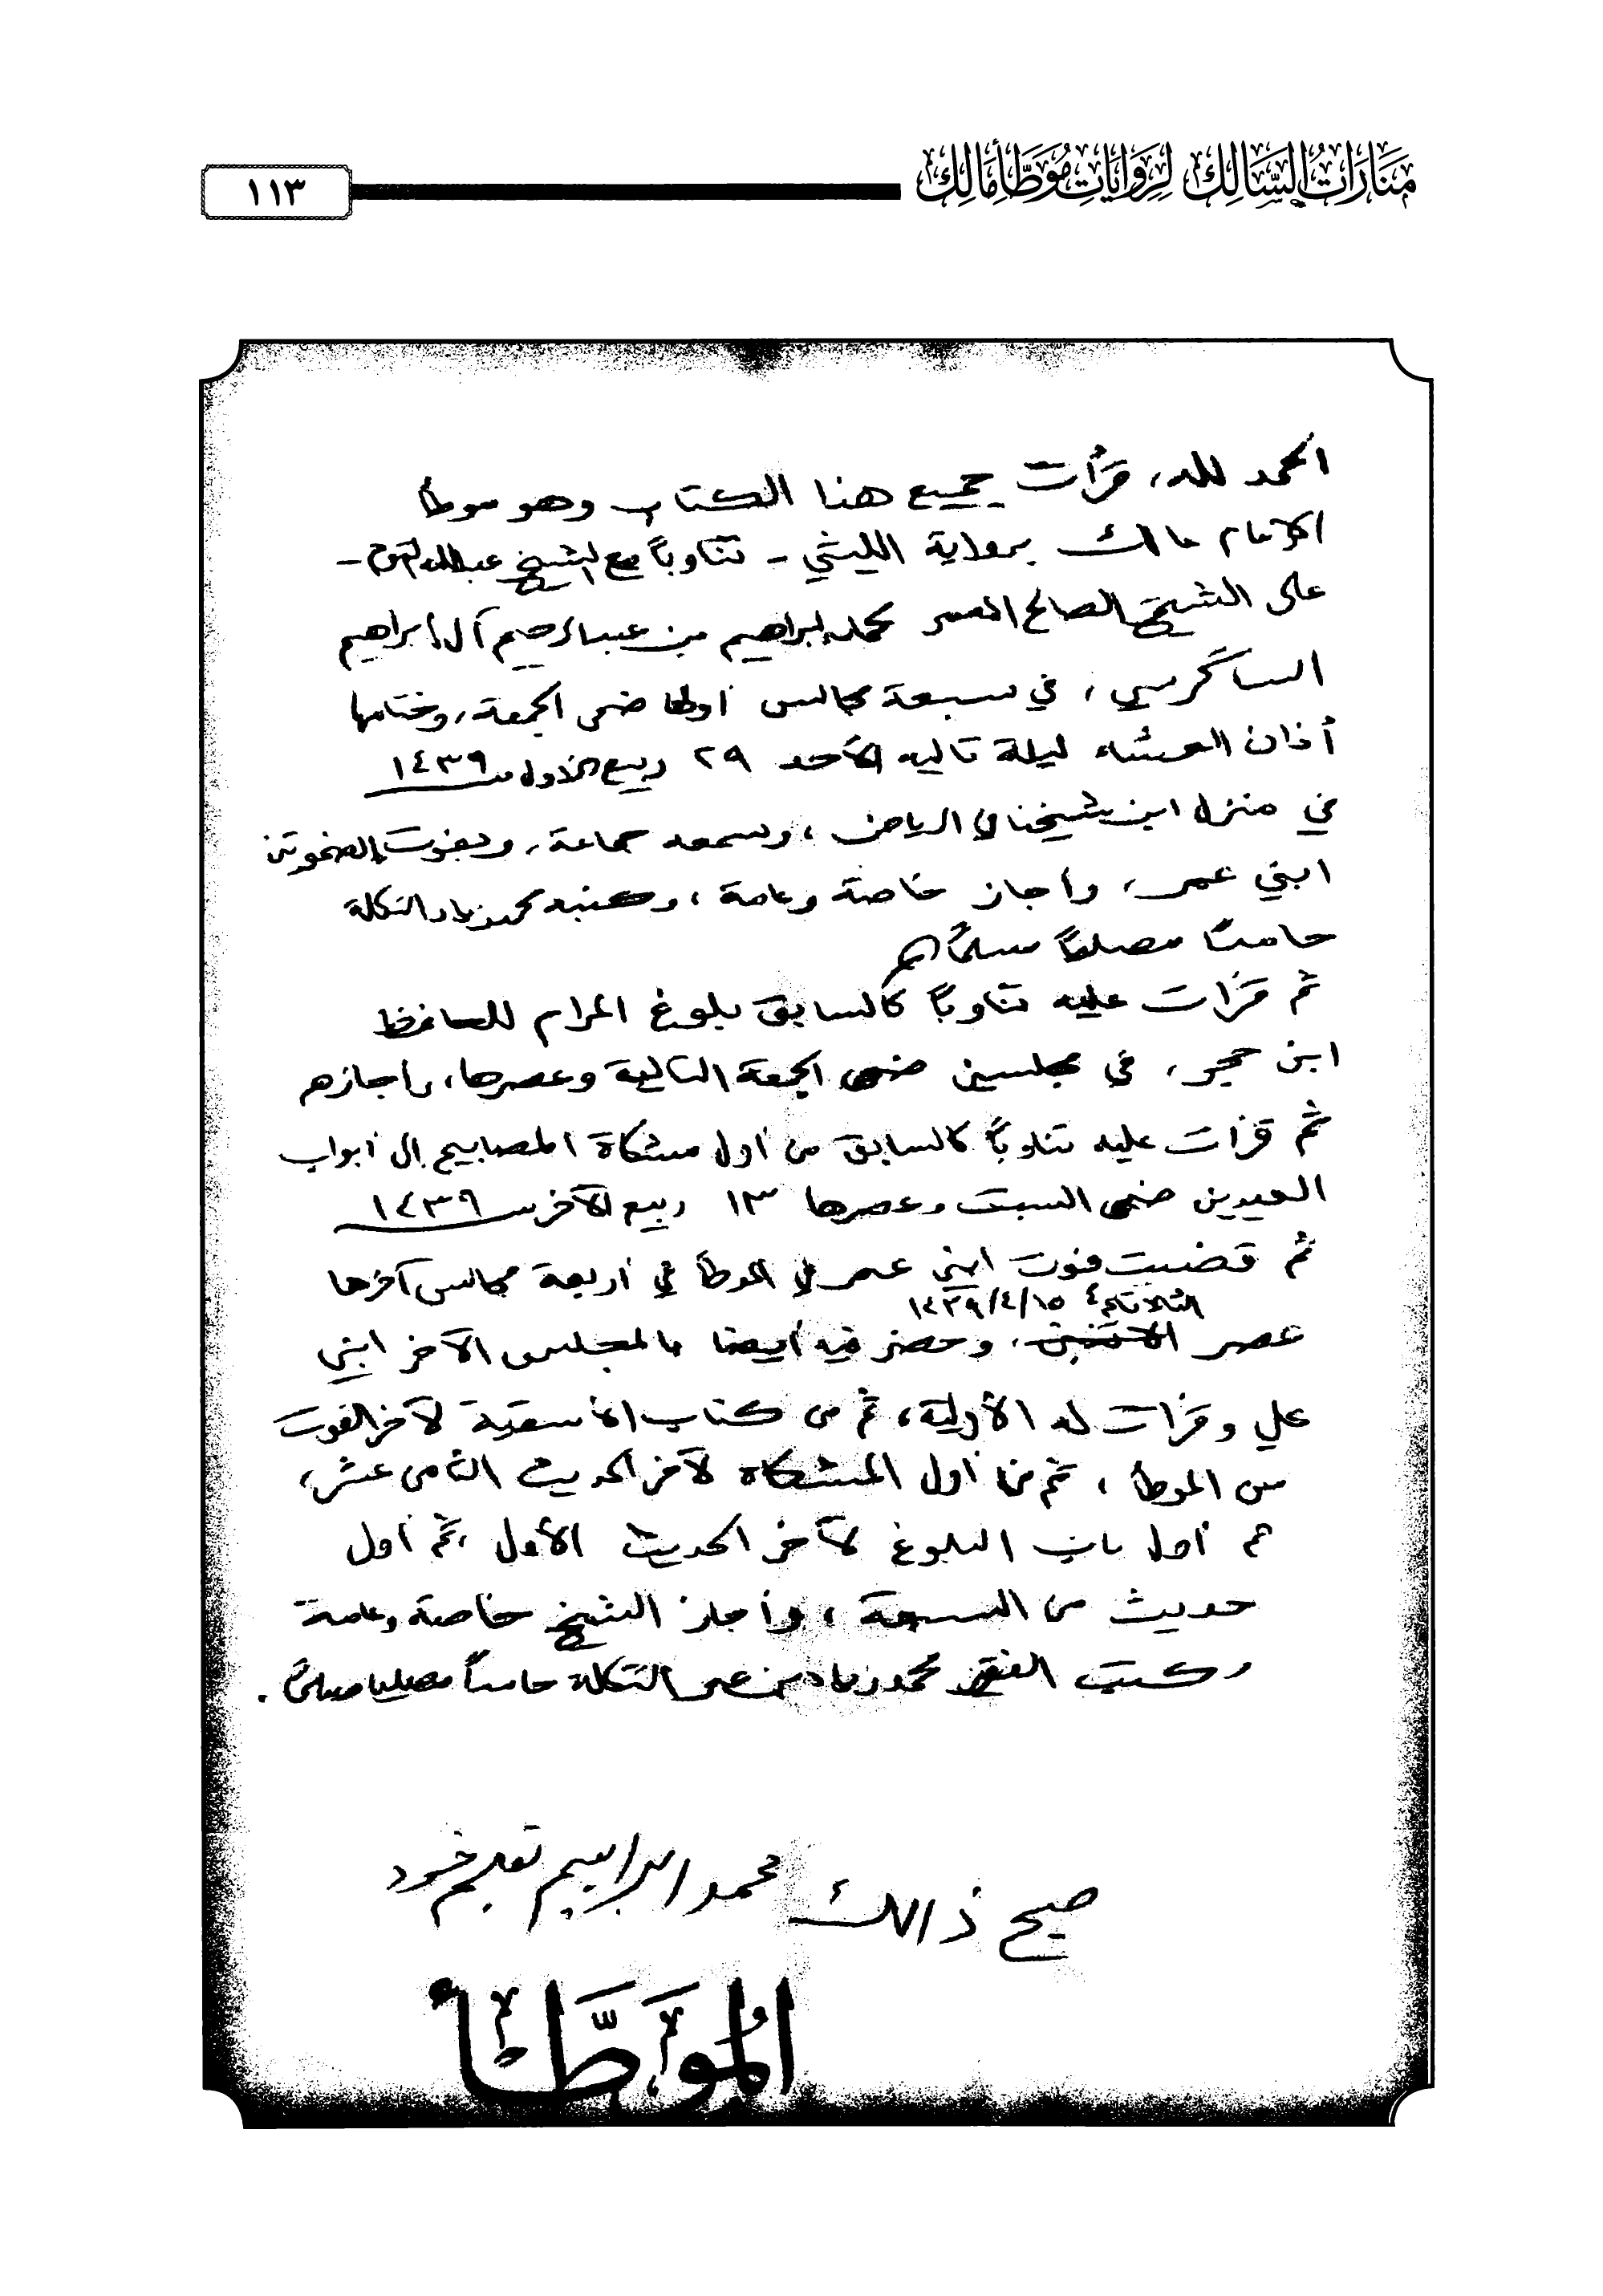 منارات السالك لروايات موطأ مالك
١١٣
الحمد لله، قرأت جميع هذا الكتاب وهو موطأ
الإمام مالك برواية الليثي - تناوباً مع الشيخ عبدالله التوم -
على الشيخ الصالح المعمر محمد إبراهيم بن عبدالرحيم آل إبراهيم
الساكرسي، في سبعة مجالس أولها ضحى الجمعة، وختامها
أذان العشاء ليلة تاليه الأحد ٢٩ ربيع الأول سـ ١٤٣٩
في منزل ابن شيخنا في الرياض، وسمعه جماعة، وبفوت
ابني عمر، وأجاز خاصة وعامة، وكتبه محمد زياد التكلة
حامداً مصلياً مسلماً
ثم قرأت عليه تناوباً كالسابق بلوغ المرام للحافظ
ابن حجر، في مجلسين ضحى الجمعة التالية وعصرها، وأجازهم
ثم قرأت عليه تناوباً كالسابق من أول مشكاة المصابيح إلى أبواب
العيدين ضحى السبت وعصرها ١٣ ربيع الآخر سـ ١٤٣٩
ثم قضيت فوت ابني عمر في الموطأ في أربعة مجالس آخرها
الثلاثاء ١٤٣٩/٤/١٥
عصر الاثنين، وحضر فيه أيضا بالمجلس الآخر ابني
علي وقرأت له الأولية، ثم من كتاب الأسقية لآخر الفوت
من الموطأ، ثم من أول المشكاة لآخر الحديث الثامن عشر،
ثم أول باب البلوغ لآخر الحديث الأول، ثم أول
حديث من السبعة، وأجاز الشيخ خاصة وعامة
وكتب الفقير محمد زياد بن عمر التكلة حامداً مصلياً مسلماً.
صحيح ذالك محمد ابراہیم بقلم خود
الموطأ